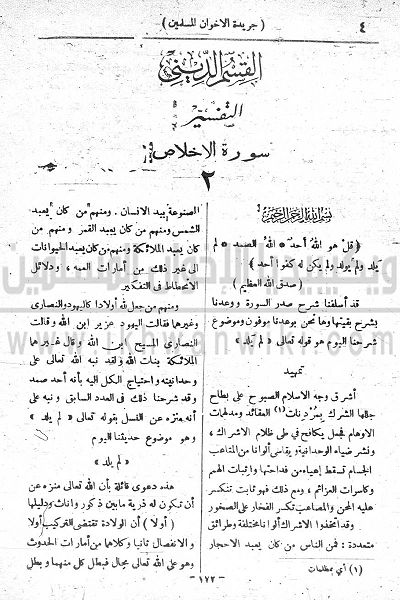 ٤
( جريدة الاخوان المسلمين )
القسم الديني
التفسير
سورة الاخلاص
٢
بسم الله الرحمن الرحيم
( قل هو الله أحد * الله الصمد * لم
يلد ولم يولد ولم يكن له كفوا أحد )
( صدق الله العظيم )
قد أسلفنا شرح صدر السورة ووعدنا
بشرح بقيتها وها نحن بوعدنا موفون وموضوع
شرحنا اليوم هو قوله تعالى « لم يلد »
تمهيد
أشرق وجه الاسلام الصبوح على بطاح
جللها الشرك بمردنات (١) العقائد ومدلهمات
الاوهام فجعل يكافح في طى ظلام الاشراك ،
ونشر ضياء الوحدانية ويقاسى ألوانا من المتاعب
الجسام تسقط إعياء من فداحتها واثبات الهمم
وكاسرات العزائم ، ومع ذلك فهو ثابت تنكسر
عليه المحن والمصاعب تكسر الفخار على الصخور
وقد اتخذوا الاشراك ألوانا مختلفة وطرائق
متعددة : فمن الناس من كان يعبد الاحجار
(١) أي بمظلمات
المصنوعة بيد الانسان ، ومنهم من كان يعبد
الشمس ومنهم من كان يعبد القمر ومنهم من
كان يعبد الملائكة ومنهم من كان يعبد الحيوانات
الى غير ذلك من أمارات العمه ، ودلائل
الانحطاط في التفكير
ومنهم من جعل لله أولادا كاليهود والنصارى
وغيرهما فقالت اليهود عزير ابن الله وقالت
النصارى المسيح ابن الله وقال غيرهما
الملائكة بنات الله ولقد نبه الله تعالى على
وحدانيته واحتياج الكل اليه بأنه أحد صمد
وقد شرحنا ذلك في العدد السابق ونبه على
أنه منزه عن النسل بقوله تعالى « لم يلد »
وهو موضوع حديثنا اليوم
« لم يلد »
هذه دعوى قائلة بأن الله تعالى منزه عن
أن تكون له ذرية مابين ذكور واناث ودليلها
( أولا ) أن الولادة تقتضى التركيب أولا
والانفصال ثانيا وكلاهما من أمارات الحدوث
وهو على الله تعالى محال فبطل كل منهما وبطل
— ١٧٢ —